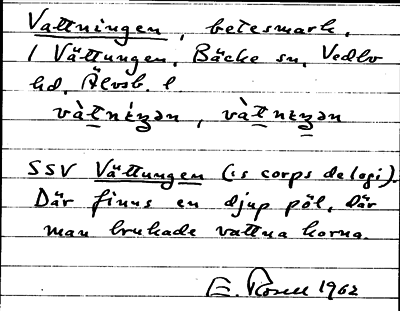 Vattningen, betesmark,
i Vättungen, Bäcke sn, Vedbo
hd, Älvsb. l
vàtnéŋən, vàtnɩŋən
SSV Vättungen (is corps de logi).
Där finns en djup pöl, där
man brukade vattna korna.
E. Rosell 1962